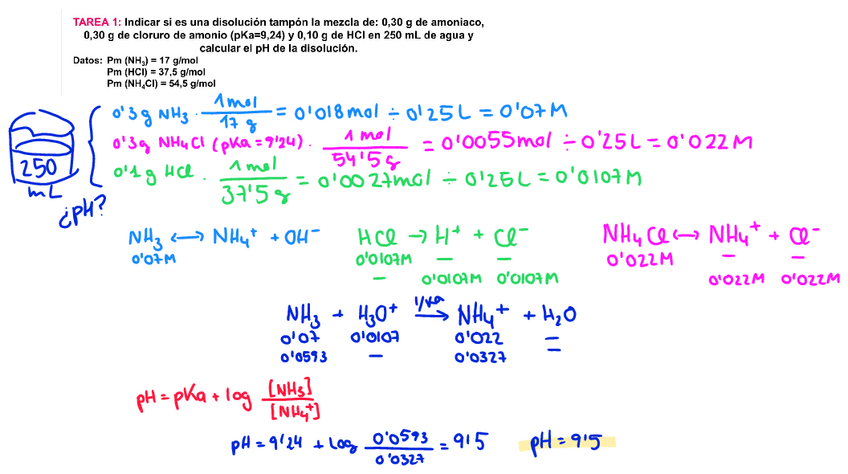 TAREA 1: Indicar si es una disolución tampón la mezcla de: 0,30 g de amoniaco,
0,30 g de cloruro de amonio (pKa=9,24) y 0,10 g de HCl en 250 mL de agua y
calcular el pH de la disolución.
Datos: Pm (NH₃) = 17 g/mol
Pm (HCl) = 37,5 g/mol
Pm (NH₄Cl) = 54,5 g/mol
250
mL
¿pH?
0'3 g NH₃ · 1 mol / 17 g = 0'018 mol ÷ 0'25 L = 0'07 M
0'3g NH₄Cl (pKa = 9'24) · 1 mol / 54'5 g = 0'0055 mol ÷ 0'25 L = 0'022 M
0'1 g HCl · 1 mol / 37'5 g = 0'0027 mol ÷ 0'25 L = 0'0107 M
NH₃ ⟷ NH₄⁺ + OH⁻ HCl → H⁺ + Cl⁻ NH₄Cl ⟷ NH₄⁺ + Cl⁻
0'07M 0'0107M — — 0'022M — —
— 0'0107M 0'0107M 0'022M 0'022M
NH₃ + H₃O⁺ 1/Ka → NH₄⁺ + H₂O
0'07 0'0107 0'022 —
0'0593 — 0'0327 —
pH = pKa + log [NH₃] / [NH₄⁺]
pH = 9'24 + log 0'0593 / 0'0327 = 9'5 pH = 9'5